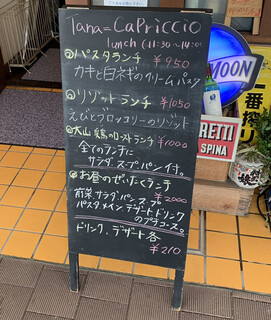 Tana=CaPriccio
lunch (11:30〜14:00)
①パスタランチ ¥950
カキと白ネギのクリームパスタ
②リゾットランチ ¥1050
えびとブロッコリーのリゾット
③大山鶏のローストランチ ¥1000
全てのランチに
サラダ、スープ、パン付。
④お昼のぜいたくランチ ¥2000
前菜、サラダ、パン、スープ
パスタ、メイン、デザート、ドリンク
のプチコース。
ドリンク、デザート各
¥210
MOON
一番搾り
RETTI
SPINA